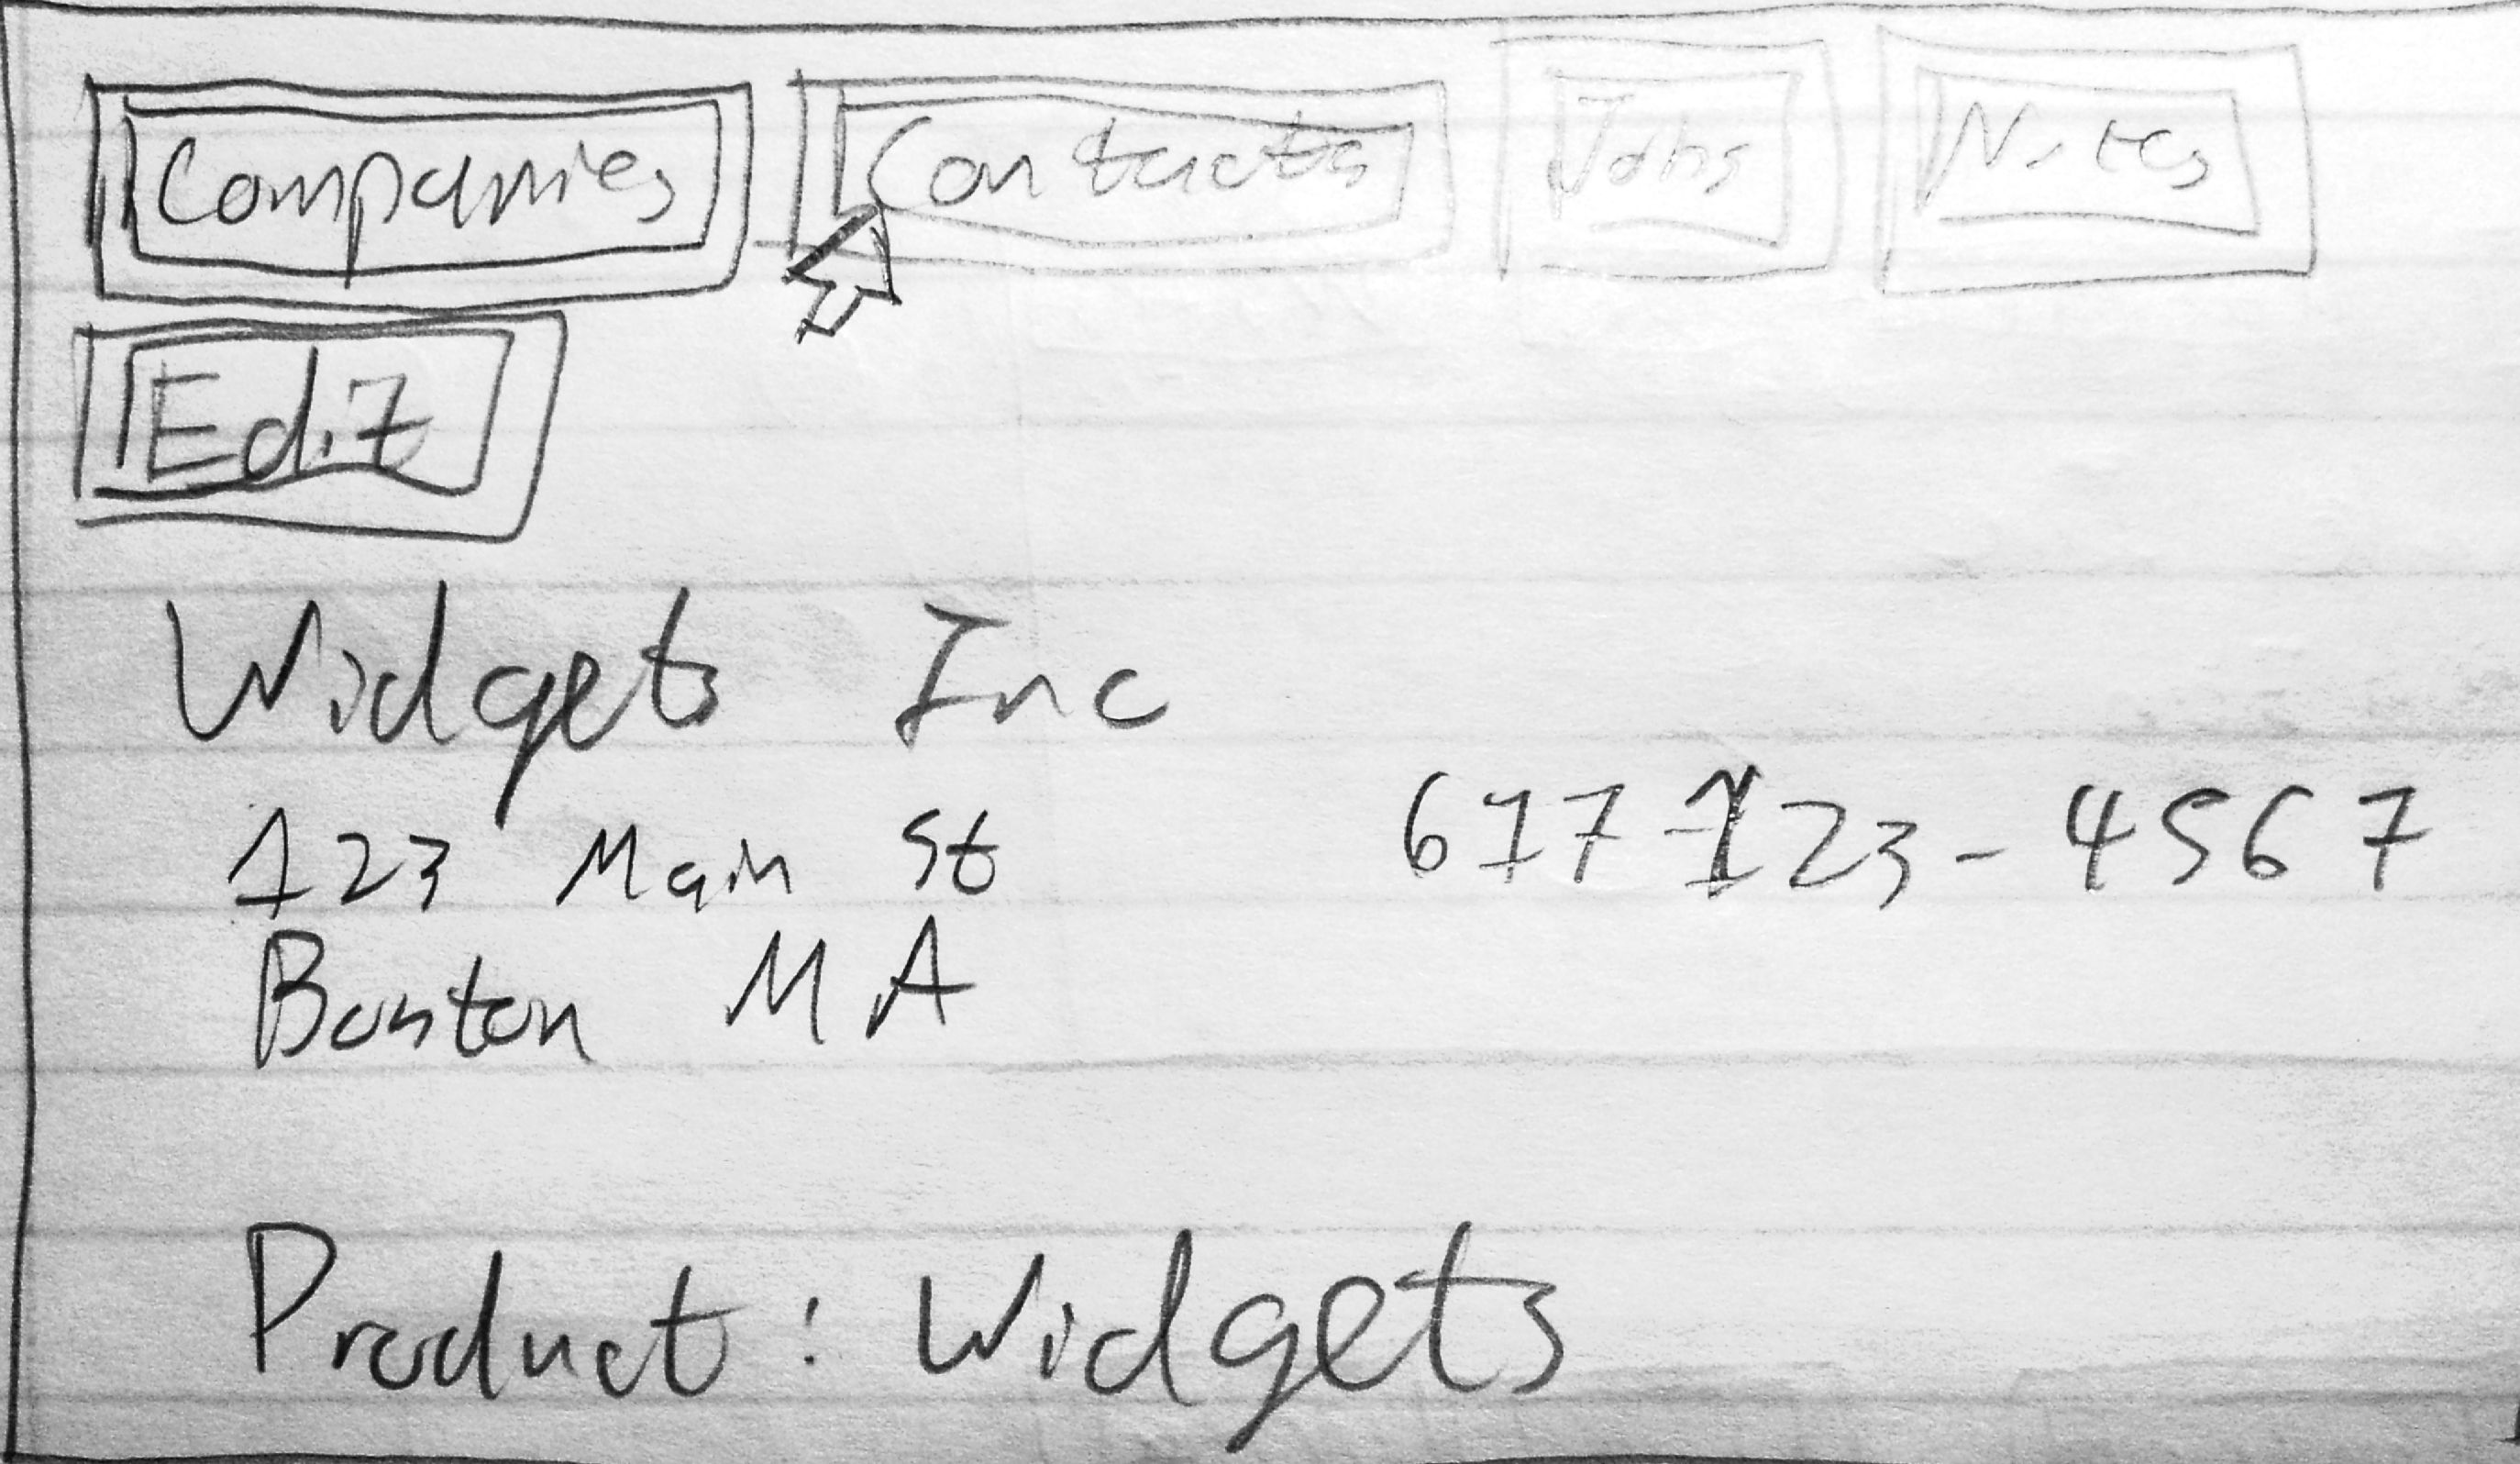 Companies Contacts Jobs Notes
Edit
Widgets Inc
123 Main St 617 123-4567
Boston MA
Product: Widgets